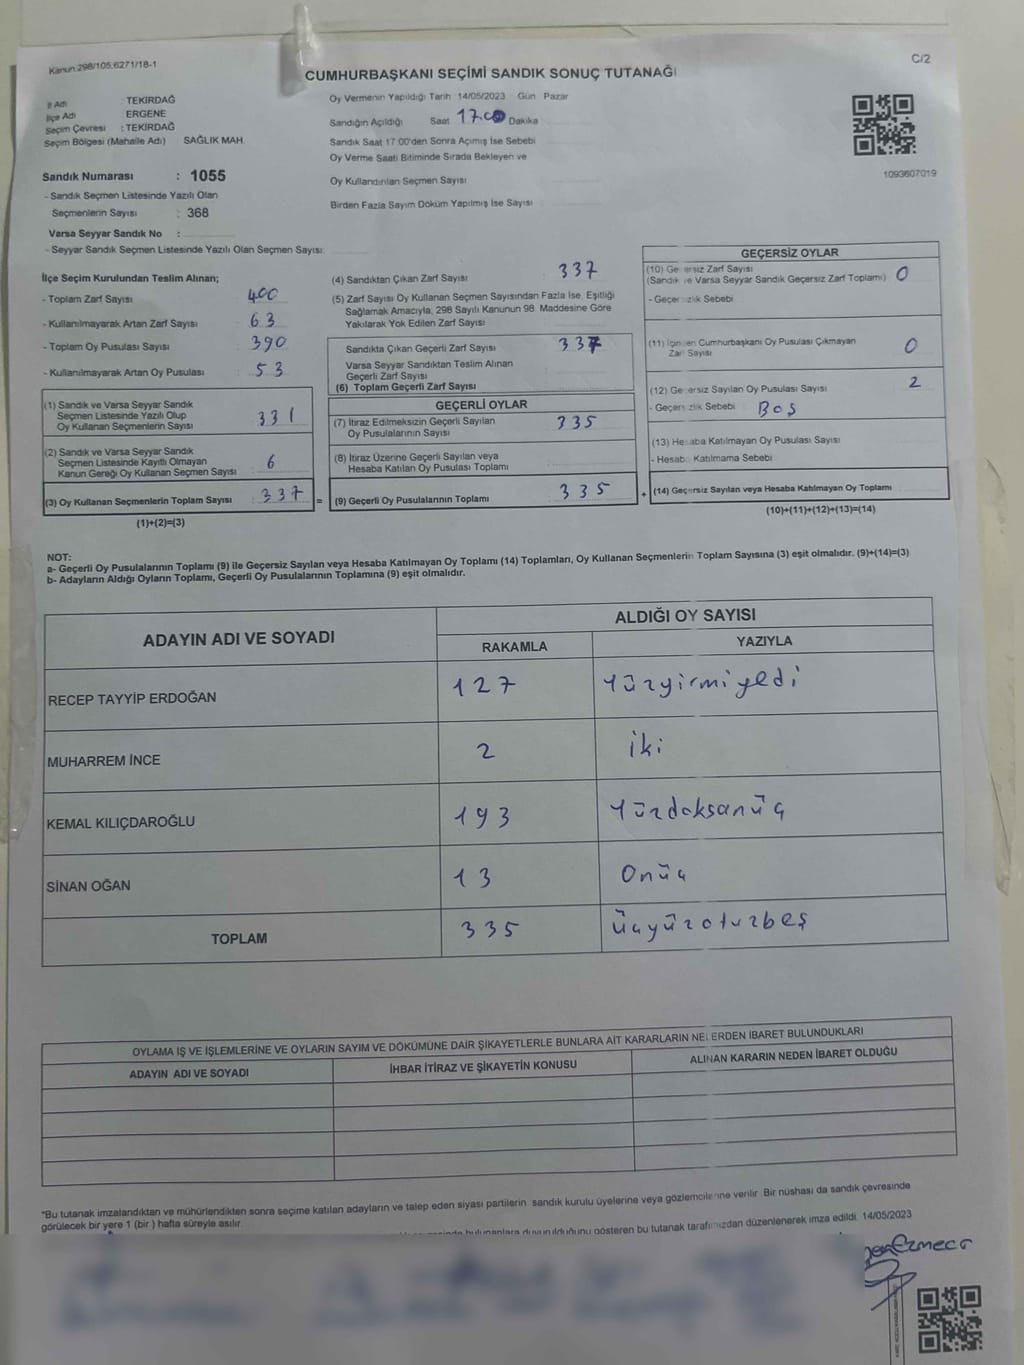 Kanun:298/105;6271/18-1
C/2
CUMHURBAŞKANI SEÇİMİ SANDIK SONUÇ TUTANAĞI
İl Adı TEKİRDAĞ
İlçe Adı ERGENE
Seçim Çevresi : TEKİRDAĞ
Seçim Bölgesi (Mahalle Adı) SAĞLIK MAH
Sandık Numarası : 1055
- Sandık Seçmen Listesinde Yazılı Olan
Seçmenlerin Sayısı : 368
Varsa Seyyar Sandık No :
- Seyyar Sandık Seçmen Listesinde Yazılı Olan Seçmen Sayısı:
Oy Vermenin Yapıldığı Tarih 14/05/2023 Gün Pazar
Sandığın Açıldığı Saat 17.00 Dakika
Sandık Saat 17:00'den Sonra Açımış İse Sebebi
Oy Verme Saati Bitiminde Sırada Bekleyen ve
Oy Kullandırılan Seçmen Sayısı
Birden Fazla Sayım Döküm Yapılmış İse Sayısı
1093607019
İlçe Seçim Kurulundan Teslim Alınan;
- Toplam Zarf Sayısı 400
- Kullanılmayarak Artan Zarf Sayısı 63
- Toplam Oy Pusulası Sayısı 390
- Kullanılmayarak Artan Oy Pusulası 53
(1) Sandık ve Varsa Seyyar Sandık
Seçmen Listesinde Yazılı Olup
Oy Kullanan Seçmenlerin Sayısı 331
(2) Sandık ve Varsa Seyyar Sandık
Seçmen Listesinde Kayıtlı Olmayan
Kanun Gereği Oy Kullanan Seçmen Sayısı 6
(3) Oy Kullanan Seçmenlerin Toplam Sayısı 337 =
(1)+(2)=(3)
(4) Sandıktan Çıkan Zarf Sayısı 337
(5) Zarf Sayısı Oy Kullanan Seçmen Sayısından Fazla İse, Eşitliği
Sağlamak Amacıyla, 298 Sayılı Kanunun 98. Maddesine Göre
Yakılarak Yok Edilen Zarf Sayısı
Sandıkta Çıkan Geçerli Zarf Sayısı 337
Varsa Seyyar Sandıktan Teslim Alınan
Geçerli Zarf Sayısı
(6) Toplam Geçerli Zarf Sayısı
GEÇERLİ OYLAR
(7) İtiraz Edilmeksizin Geçerli Sayılan
Oy Pusulalarının Sayısı 335
(8) İtiraz Üzerine Geçerli Sayılan veya
Hesaba Katılan Oy Pusulası Toplamı
(9) Geçerli Oy Pusulalarının Toplamı 335 +
GEÇERSİZ OYLAR
(10) Geçersiz Zarf Sayısı
(Sandık ve Varsa Seyyar Sandık Geçersiz Zarf Toplamı) 0
- Geçersizlik Sebebi
(11) İçinden Cumhurbaşkanı Oy Pusulası Çıkmayan
Zarf Sayısı 0
(12) Geçersiz Sayılan Oy Pusulası Sayısı 2
- Geçersizlik Sebebi BOŞ
(13) Hesaba Katılmayan Oy Pusulası Sayısı
- Hesaba Katılmama Sebebi
(14) Geçersiz Sayılan veya Hesaba Katılmayan Oy Toplamı
(10)+(11)+(12)+(13)=(14)
NOT:
a- Geçerli Oy Pusulalarının Toplamı (9) ile Geçersiz Sayılan veya Hesaba Katılmayan Oy Toplamı (14) Toplamları, Oy Kullanan Seçmenlerin Toplam Sayısına (3) eşit olmalıdır. (9)+(14)=(3)
b- Adayların Aldığı Oyların Toplamı, Geçerli Oy Pusulalarının Toplamına (9) eşit olmalıdır.
ADAYIN ADI VE SOYADI
ALDIĞI OY SAYISI
RAKAMLA YAZIYLA
RECEP TAYYİP ERDOĞAN 127 Yüzyirmiyedi
MUHARREM İNCE 2 iki
KEMAL KILIÇDAROĞLU 193 Yüzdoksanüç
SİNAN OĞAN 13 Onüç
TOPLAM 335 üçyüzotuzbeş
OYLAMA İŞ VE İŞLEMLERİNE VE OYLARIN SAYIM VE DÖKÜMÜNE DAİR ŞİKAYETLERLE BUNLARA AİT KARARLARIN NELERDEN İBARET BULUNDUKLARI
ADAYIN ADI VE SOYADI İHBAR İTİRAZ VE ŞİKAYETİN KONUSU ALINAN KARARIN NEDEN İBARET OLDUĞU
*Bu tutanak imzalandıktan ve mühürlendikten sonra seçime katılan adayların ve talep eden siyasi partilerin sandık kurulu üyelerine veya gözlemcilerine verilir. Bir nüshası da sandık çevresinde
görülecek bir yere 1 (bir) hafta süreyle asılır.
bulunanlara duyurulduğunu gösteren bu tutanak tarafımızdan düzenlenerek imza edildi. 14/05/2023